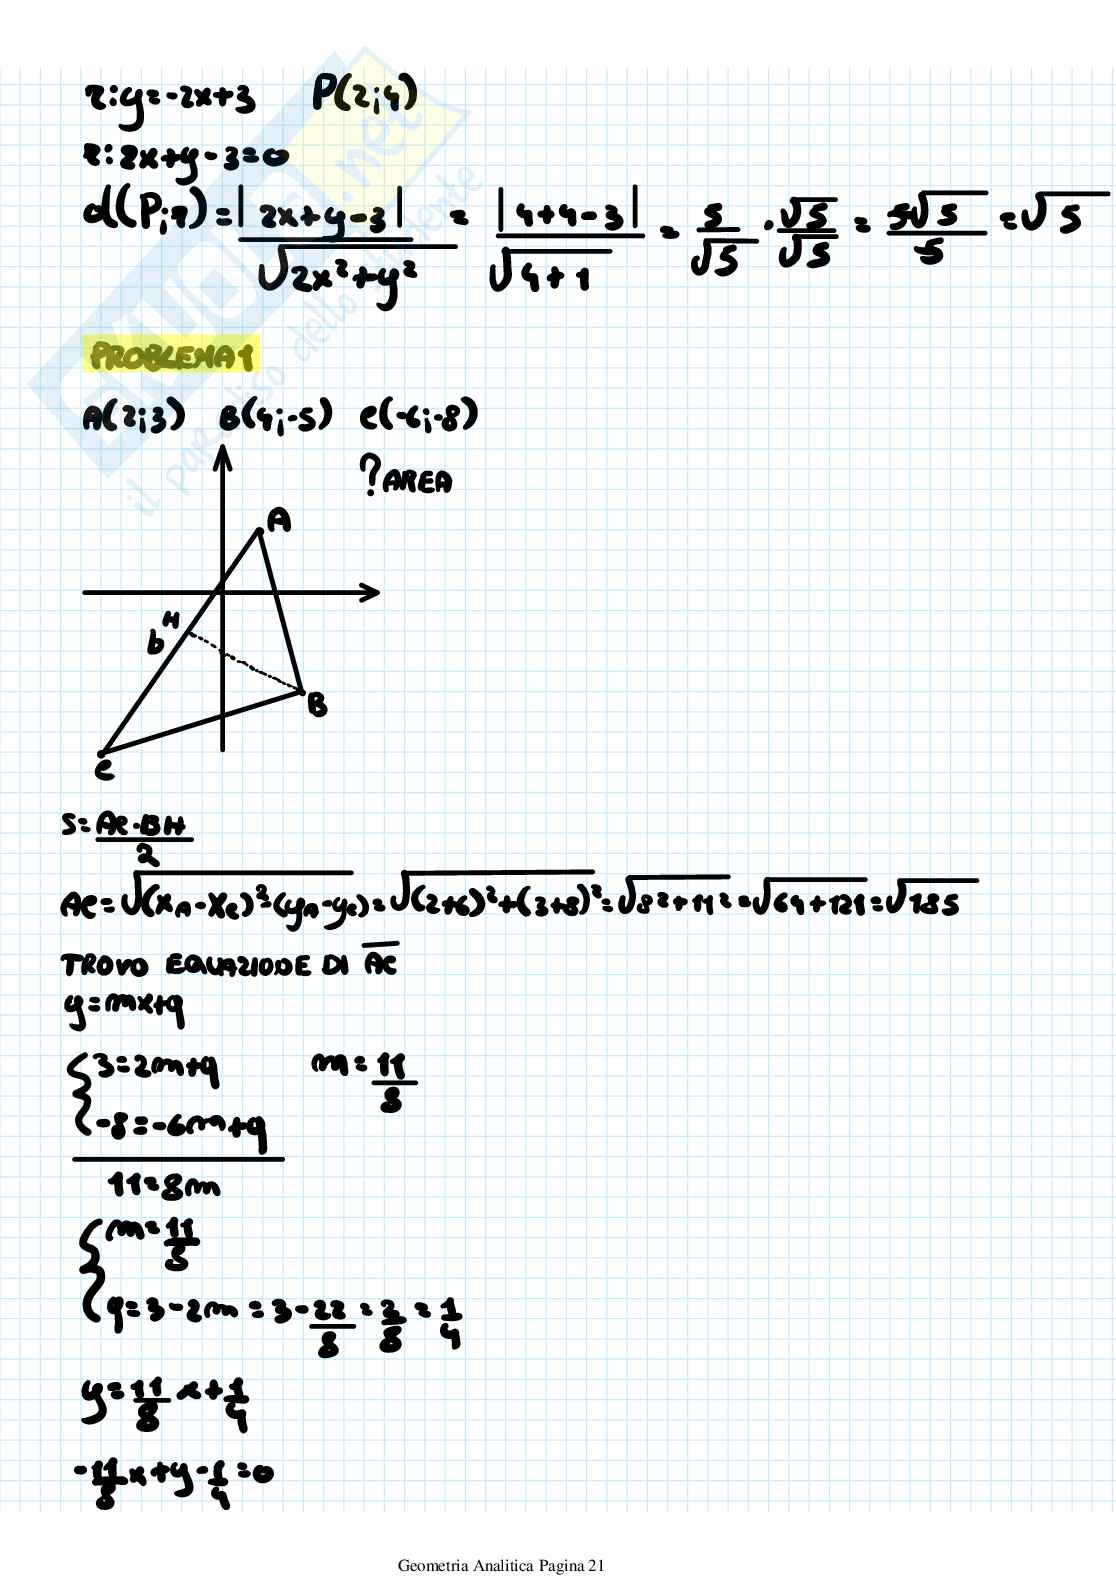 r: y=-2x+3 P(2;4)
r: 2x+y-3=0
d(P;r) = |2x+y-3| / √2x²+y² = |4+4-3| / √4+1 = 5/√5 · √5/√5 = 5√5/5 = √5
PROBLEMA 1
A(2;3) B(4;-5) C(-6;-8)
? AREA
A
H
b
B
C
S= AC·BH / 2
AC= √(xA-xC)²-(yA-yC)= √(2+6)²+(3+8)²= √8²+11²= √64+121= √185
TROVO EQUAZIONE DI AC
y=mx+q
{3=2m+q m=11/8
-8=-6m+q
11=8m
{m=11/8
q=3-2m=3-22/8=2/8=1/4
y=11/8 x+1/4
-11/8 x+y-1/4=0
Geometria Analitica Pagina 21
skuola.net
il paradiso dello studente